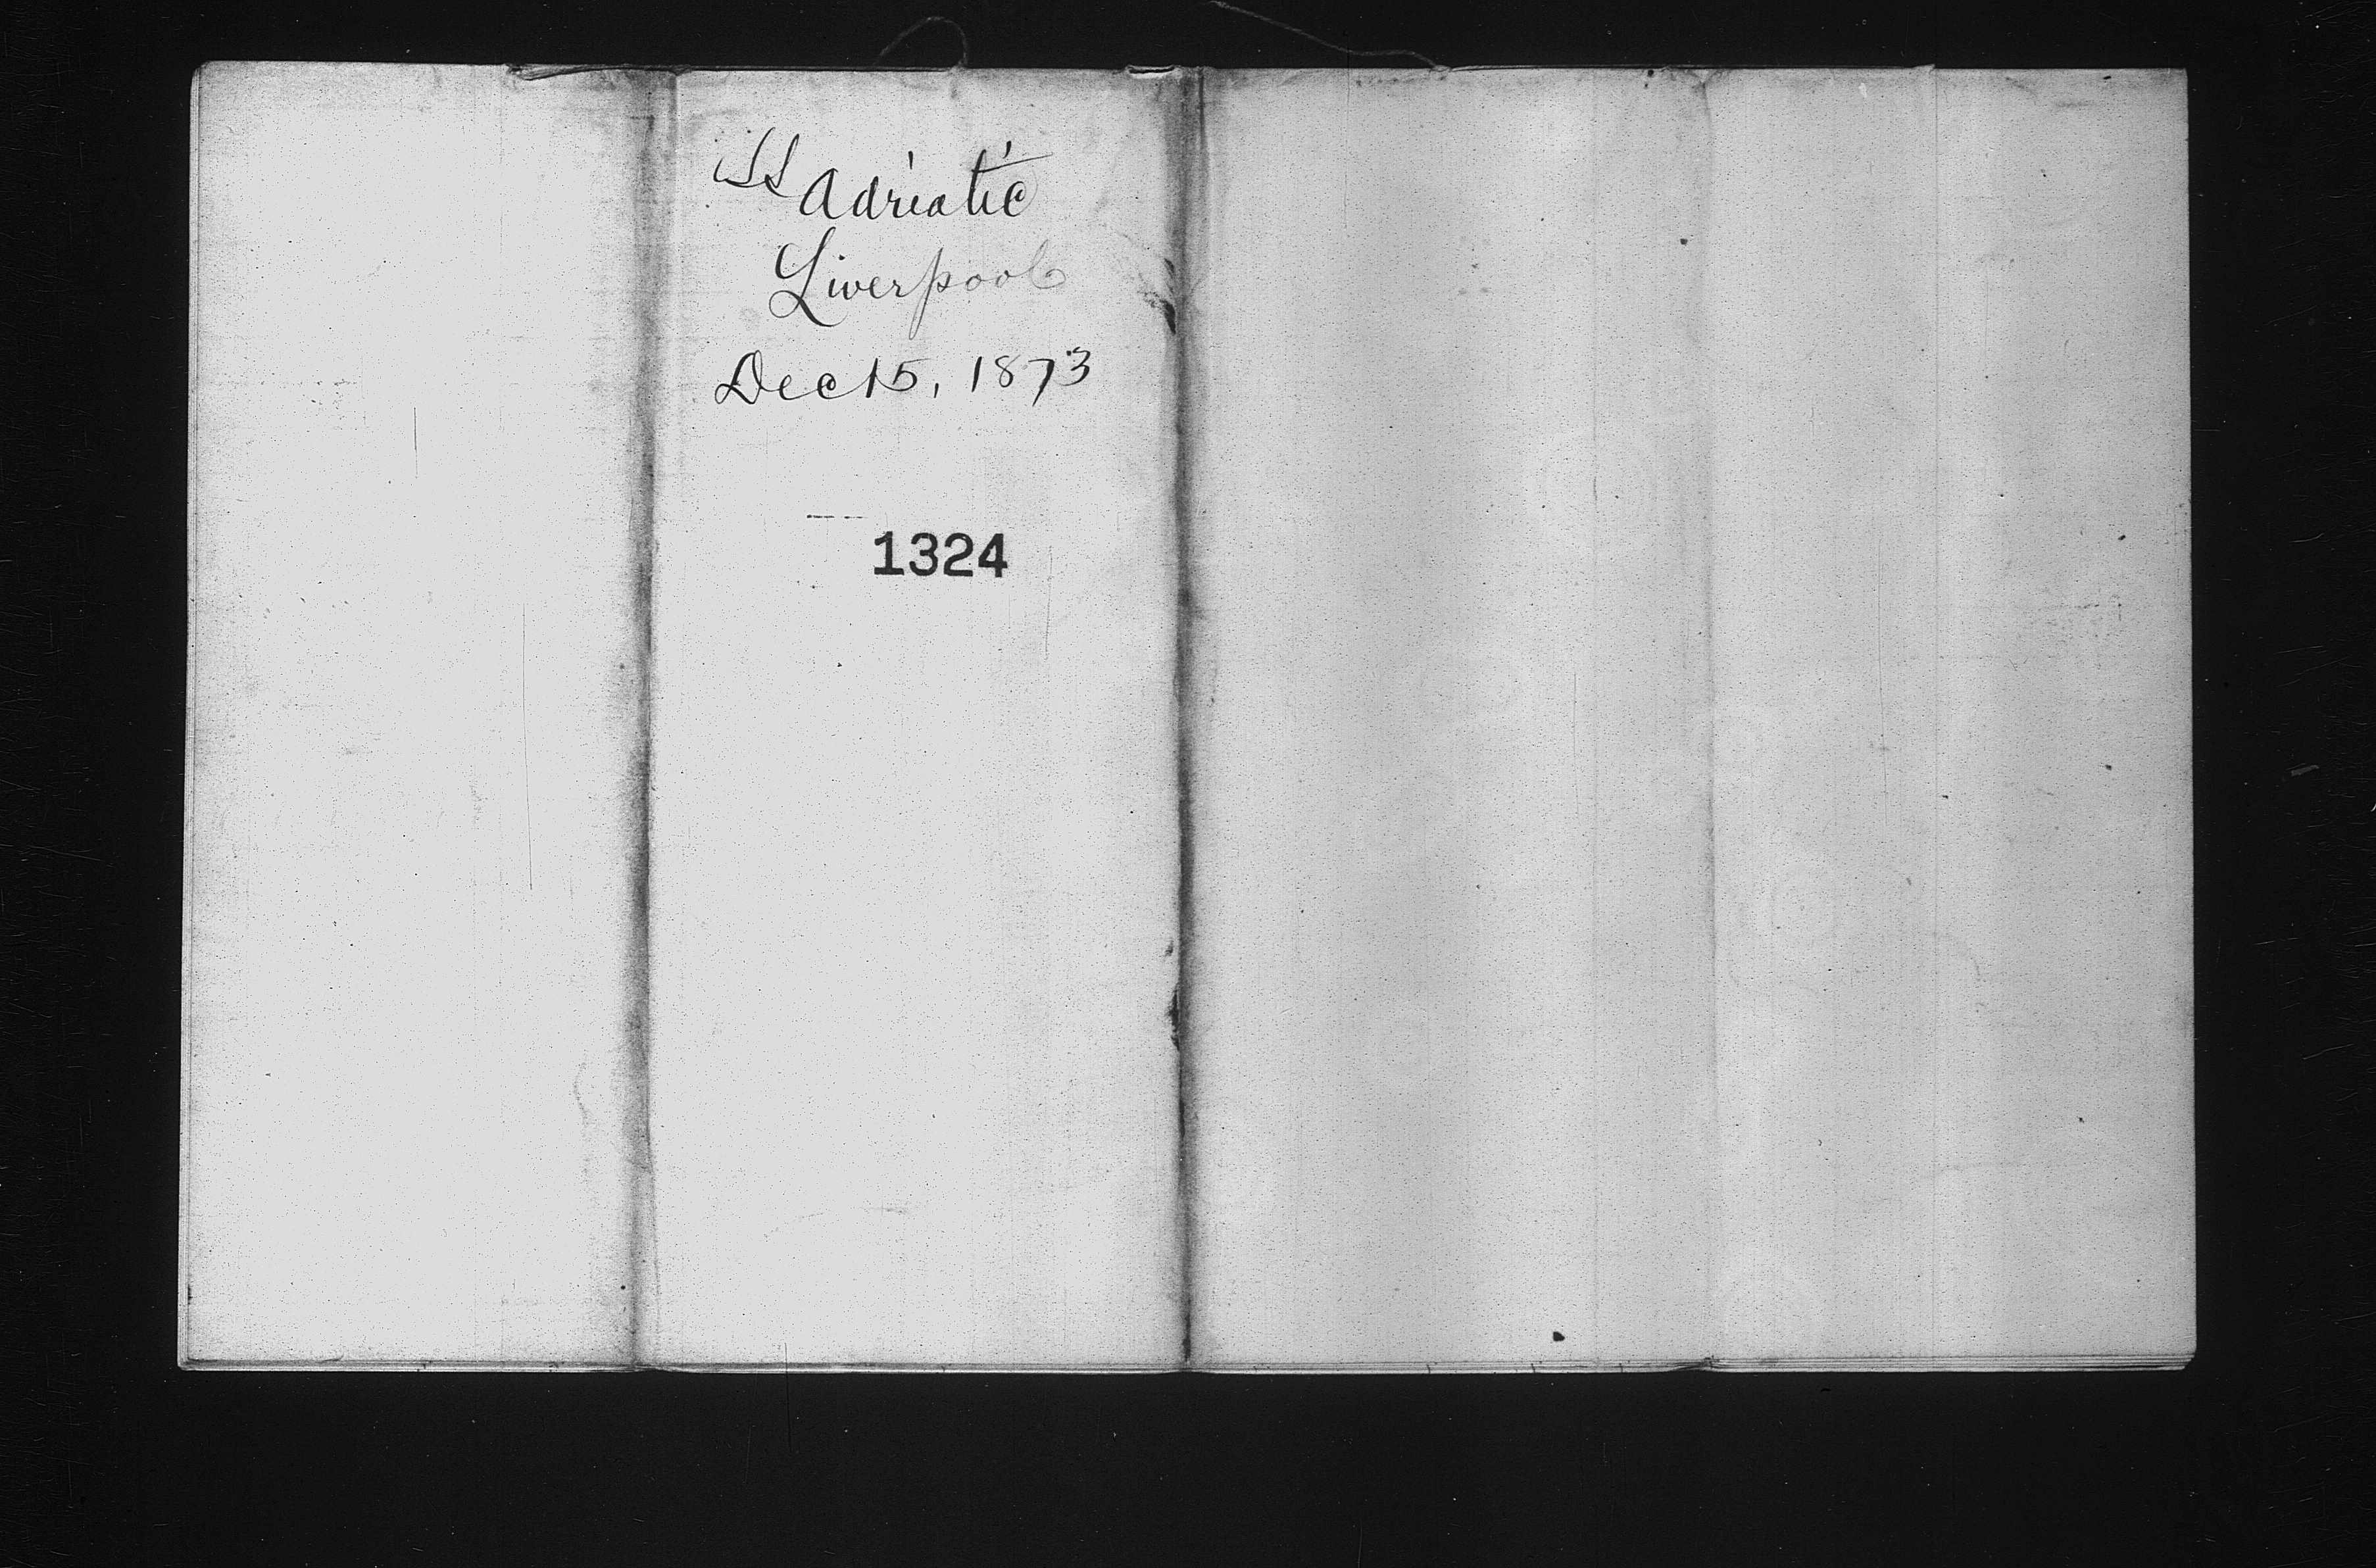 SS Adriatic
Liverpool
Dec 15, 1873
1324